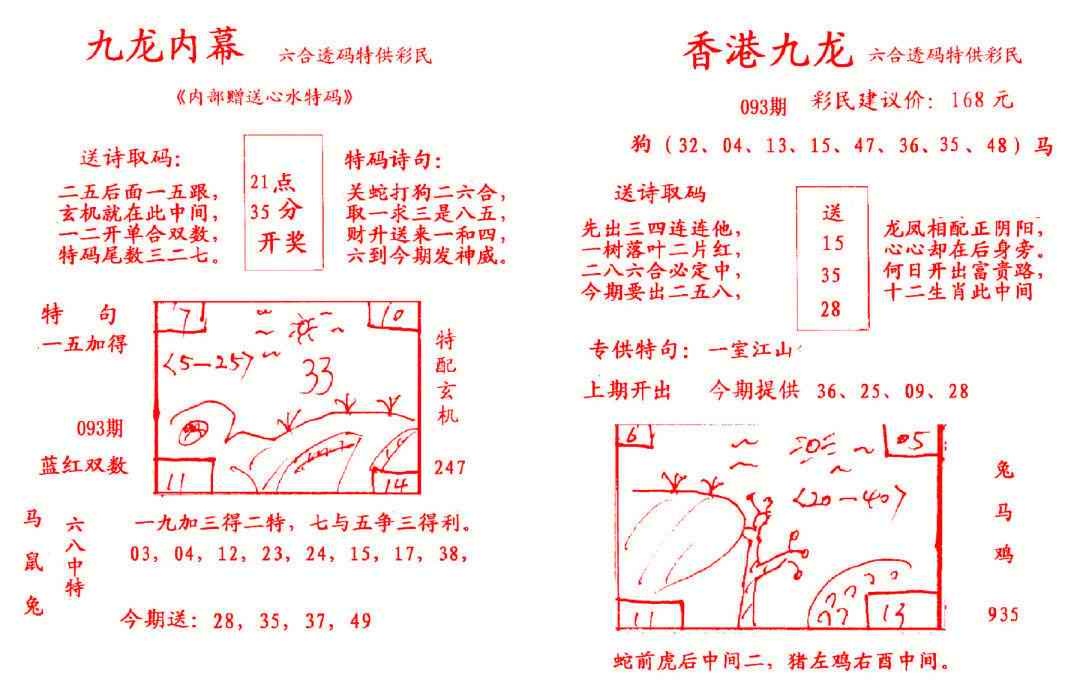 九龙内幕 六合透码特供彩民
《内部赠送心水特码》
送诗取码：
二五后面一五跟，
玄机就在此中间，
一二开单合双数，
特码尾数三二七。
21点
35分
开奖
特码诗句：
关蛇打狗二六合，
取一求三是八五，
财升送来一和四，
六到今期发神威。
特 句
一五加得
093期
蓝红双数
7
10
〈5—25〉
33
11
14
特配玄机
247
马鼠兔
六八中特
一九加三得二特，七与五争三得利。
03，04，12，23，24，15，17，38，
今期送：28，35，37，49
香港九龙 六合透码特供彩民
093期 彩民建议价：168元
狗（32、04、13、15、47、36、35、48）马
送诗取码
先出三四连连他，
一树落叶二片红，
二八六合必定中，
今期要出二五八，
送
15
35
28
龙凤相配正阴阳，
心心却在后身旁。
何日开出富贵路，
十二生肖此中间
专供特句：一室江山
上期开出 今期提供 36、25、09、28
6
05
〈20—40〉
11
13
兔马鸡
935
蛇前虎后中间二，猪左鸡右酉中间。